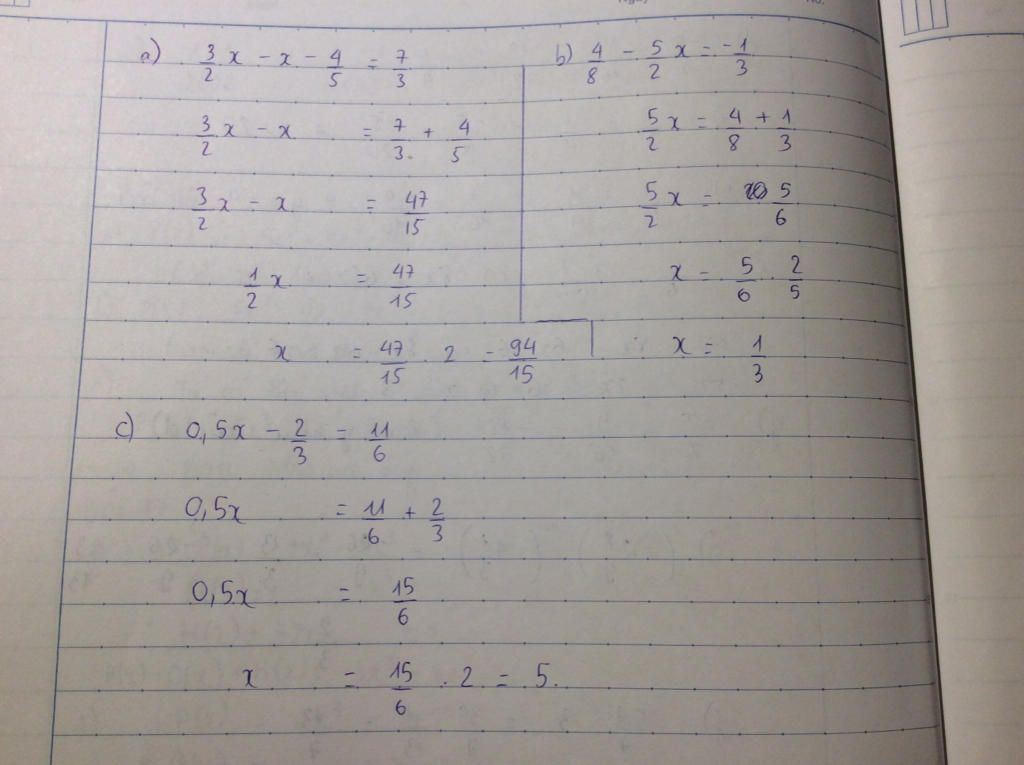 a) 3/2 x - x - 4/5 = 7/3
3/2 x - x = 7/3 + 4/5
3/2 x - x = 47/15
1/2 x = 47/15
x = 47/15 . 2 = 94/15
b) 4/8 - 5/2 x = -1/3
5/2 x = 4/8 + 1/3
5/2 x = 5/6
x = 5/6 . 2/5
x = 1/3
c) 0,5x - 2/3 = 11/6
0,5x = 11/6 + 2/3
0,5x = 15/6
x = 15/6 . 2 = 5.